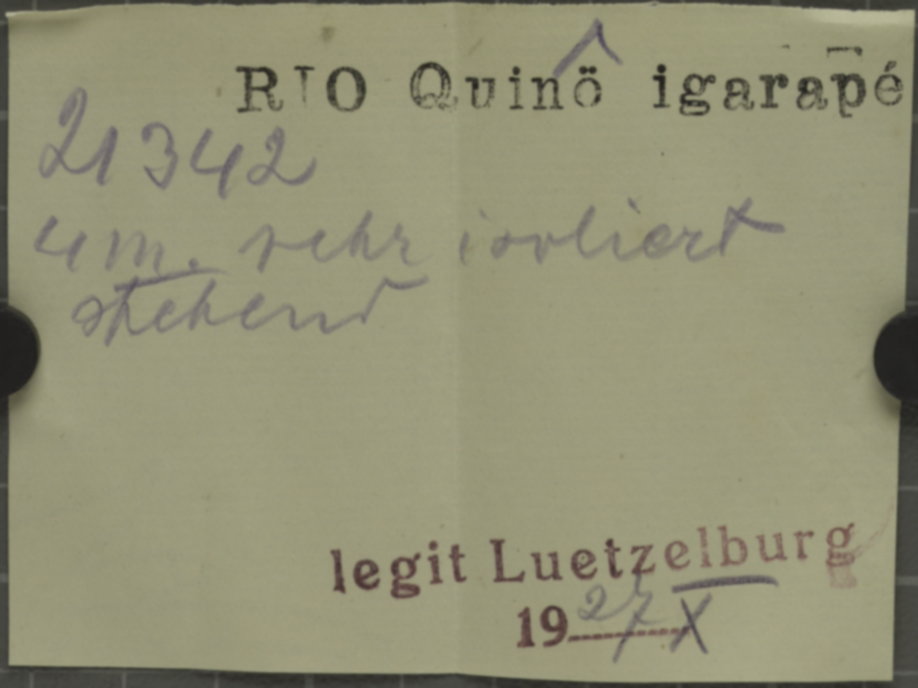 RIO Quinö igarapé
21342
4 m. sehr isoliert
stehend
legit Luetzelburg
1927 X